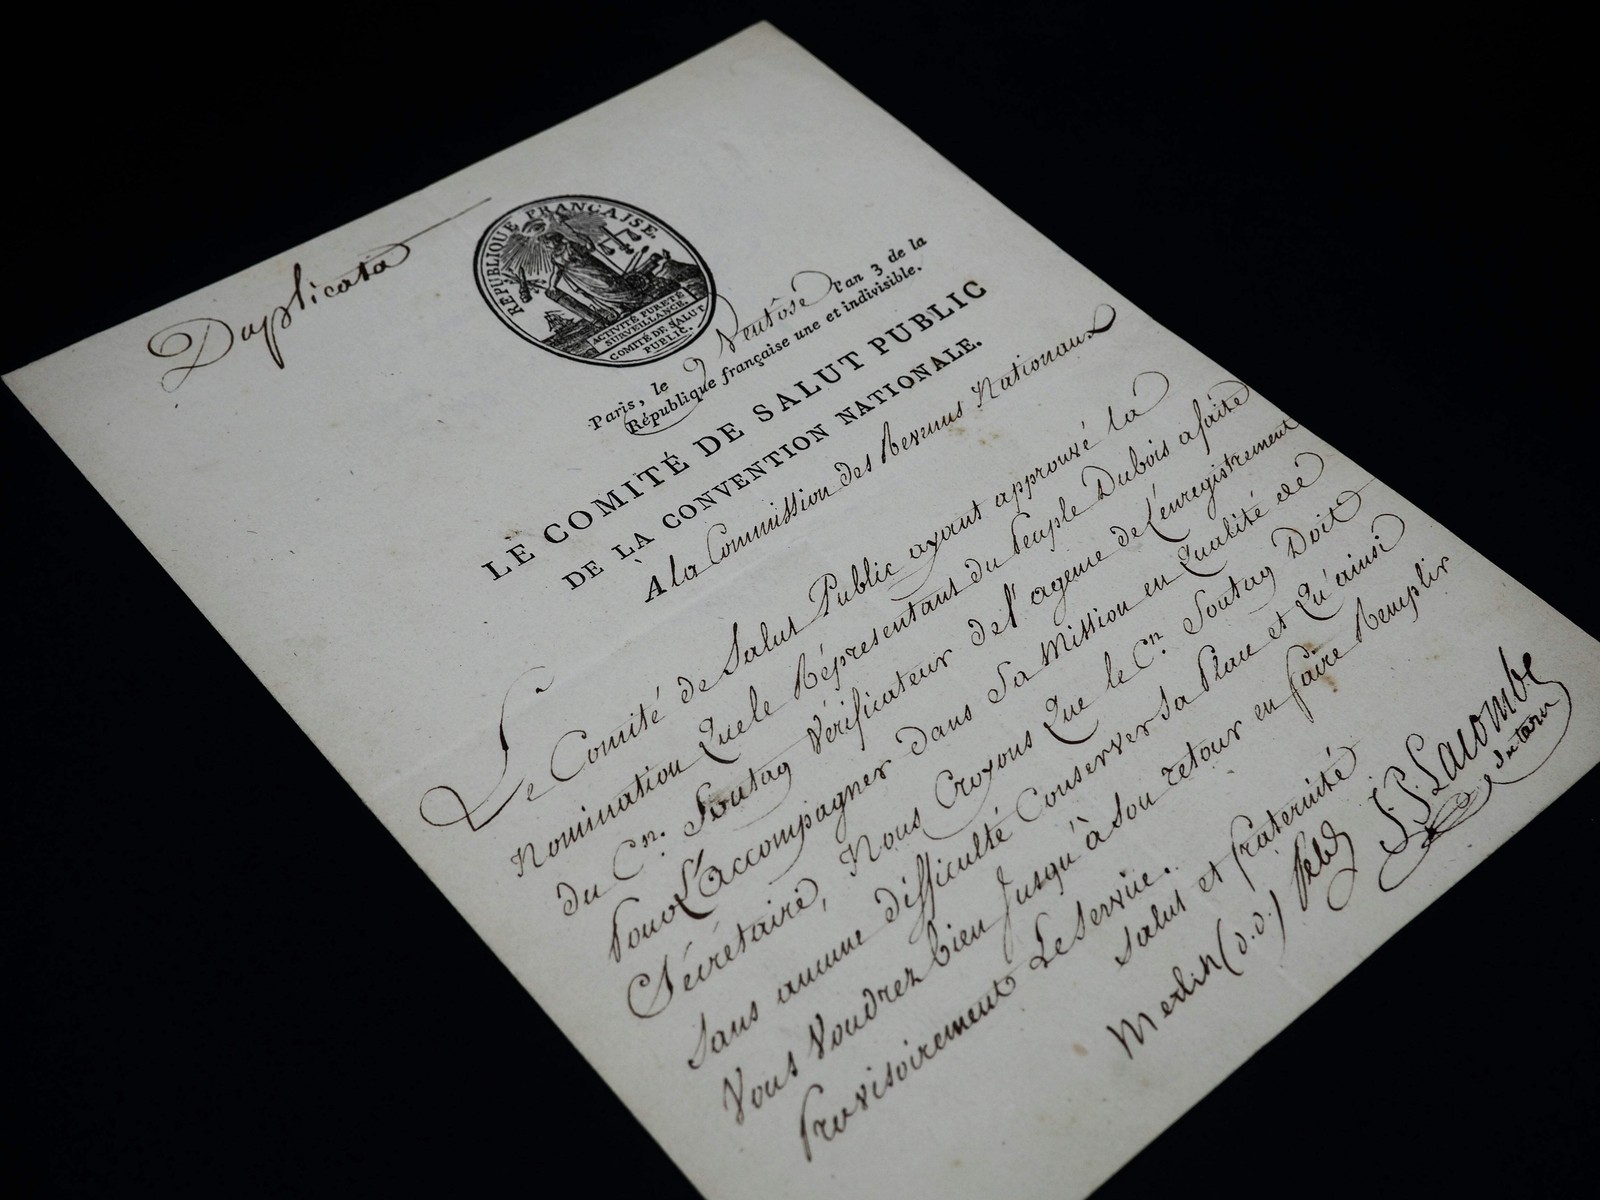 Duplicata
RÉPUBLIQUE FRANÇAISE.
ACTIVITÉ PURETÉ
SURVEILLANCE.
COMITÉ DE SALUT
PUBLIC.
Paris, le 9 Ventôse l'an 3 de la
République française une et indivisible.
LE COMITÉ DE SALUT PUBLIC
DE LA CONVENTION NATIONALE.
A la Commission des Revenus Nationaux
Le Comité de Salut Public ayant approuvé la
nomination Que le Réprésentant du Peuple Dubois a faite
du Cn. Soutag Vérificateur de l'agence de L'enregistrement
Pour L'accompagner dans Sa Mission en Qualité de
Sécrétaire, Nous Croyons Que le Cn. Soutag Doit
Sans aucune difficulté Conserver Sa Place et Qu'ainsi
Vous Voudrez bien Jusqu'à Son retour en faire Remplir
Provisoirement Le Service.
Salut et fraternité
Merlin (d.d.) Pelet J.P. Lacombe
du tarn